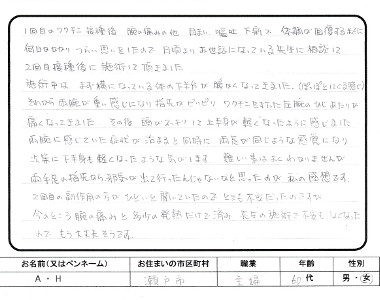 1回目のワクチン接種後 腕の痛みの他 目まい 嘔吐 下痢で 体調が回復するまでに
何日もかかり つらい思いをしたので 日頃よりお世話になっている先生に相談して
2回目接種後に施術して頂きました
施術中は まず横になっている体の下半分が暖かくなってきました
それから両腕が重い感じになり指先がピリピリ ワクチンをうった左腕の
痛くなってきました その後 頭がスーッとして上半身が軽くなったように感じました
両腕に感じていた症状が治まると同時に 両足が同じような感覚になり
次第に下半身も軽くなったような気がします 難しい事はよくわかりませんが
両手足の指先から邪気が出て行ったんじゃないかと思ったのが 私の感想です
2回目の副作用のほうがひどいと聞いていたので とても不安だったのですが
今のところ腕の痛みと多少の発熱だけで済み 先生の施術で不安もなくなった
ので もう大丈夫そうです
お名前(又はペンネーム) お住まいの市区町村 職業 年齢 性別
A・H 瀬戸市 主婦 60代 男・女